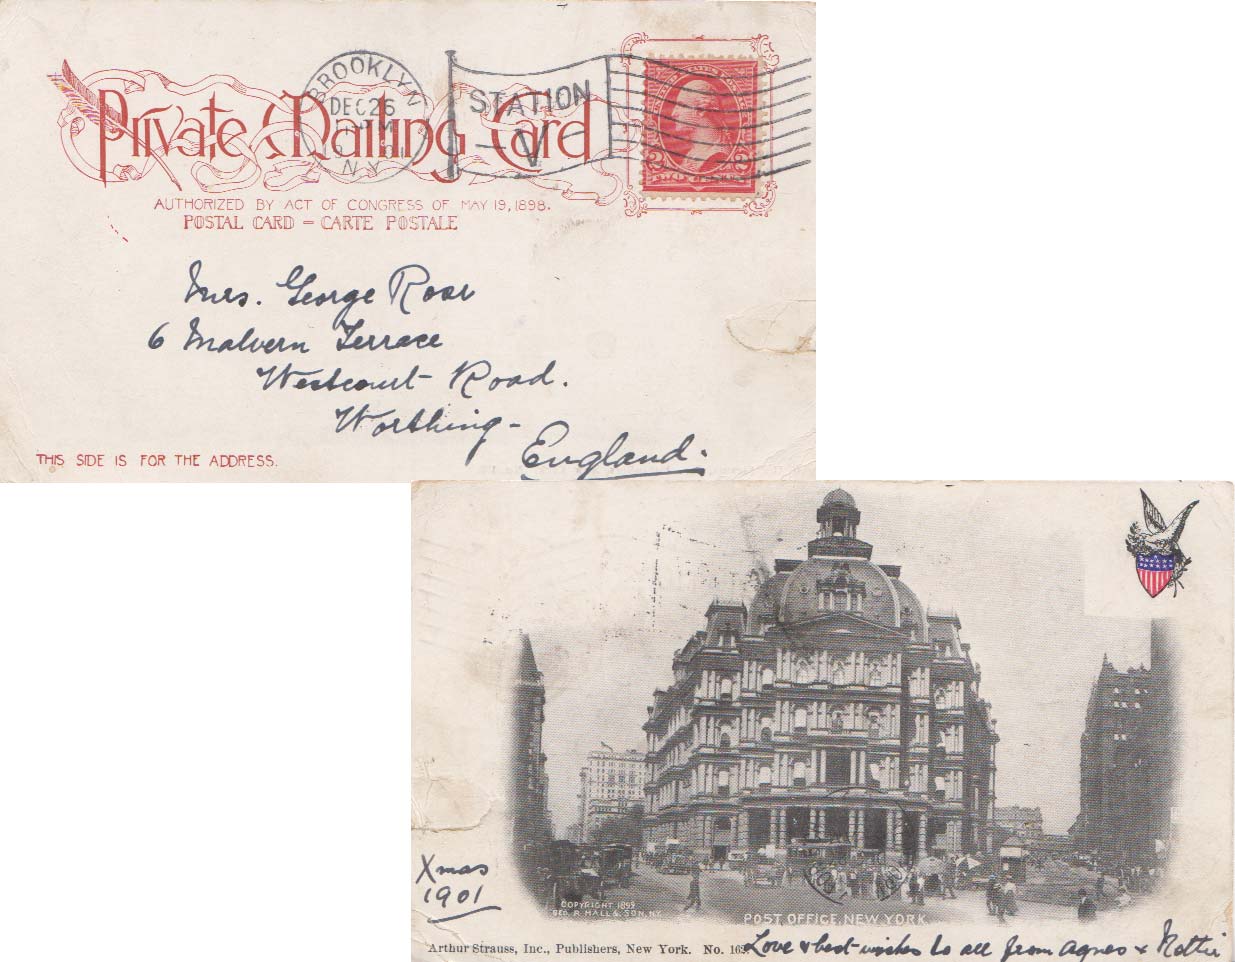 Private Mailing Card
BROOKLYN
DEC 26
N.Y.
STATION
V
2 2
AUTHORIZED BY ACT OF CONGRESS OF MAY 19, 1898.
POSTAL CARD = CARTE POSTALE
Mrs. George Rose
6 Malvern Terrace
Westcourt Road.
Worthing -
England.
THIS SIDE IS FOR THE ADDRESS.
Xmas
1901
COPYRIGHT 1899
GEO. P. HALL & SON, N.Y.
POST OFFICE, NEW YORK.
Arthur Strauss, Inc., Publishers, New York. No.
Love & best wishes to all from Agnes & Nottie